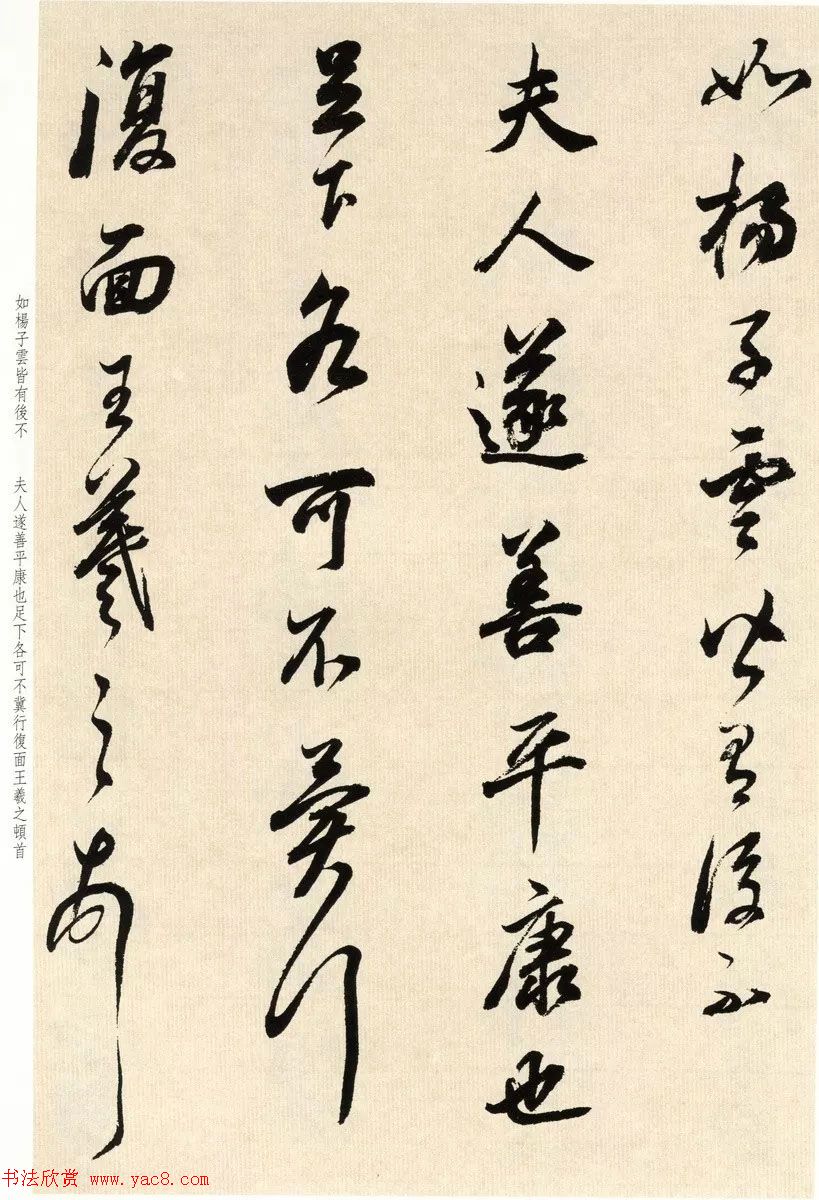 如楊子雲皆有後不
夫人遂善平康也
足下各可不冀行
復面王羲之頓首
如楊子雲皆有後不 夫人遂善平康也足下各可不冀行復面王羲之頓首
书法欣赏 www.yac8.com